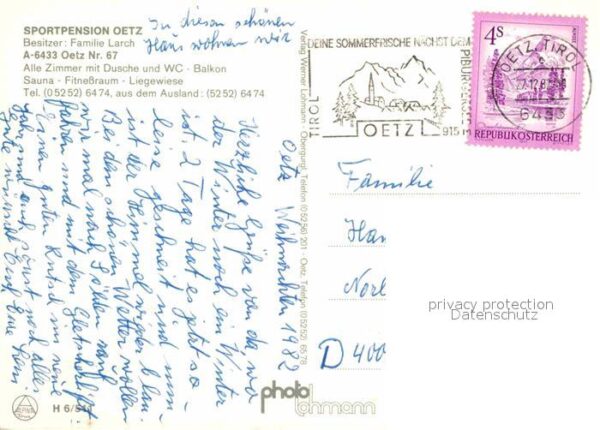 SPORTPENSION OETZ
Besitzer: Familie Larch
A-6433 Oetz Nr. 67
Alle Zimmer mit Dusche und WC · Balkon
Sauna - Fitneßraum - Liegewiese
Tel. (05252) 6474, aus dem Ausland: (5252) 6474
In diesem schönen
Haus wohnen wir
Oetz Weihnachten 1982
Herzliche Grüße von da, wo
der Winter noch ein Winter
ist. 2 Tage hat es jetzt so
leise geschneit und nun
ist der Himmel wieder blau
Bei dem schönen Wetter wollen
wir mal nach Sölden rauf
fahren und mit dem Gletscherlift
Einen guten Rutsch ins neue
und auch sonst noch alles
Gute wünscht Euch Eure
Verlag Werner Lohmann, Obergurgl, Telefon (05256) 201 · Oetz, Telefon (05252) 6578
DEINE SOMMERFRISCHE NÄCHST DEM
PIBURGERSEE
TIROL
OETZ
915 M
OETZ, TIROL
6433
4 S
REPUBLIK ÖSTERREICH
Familie
Han
Norl
D 400
privacy protection
Datenschutz
photo
lohmann
H 6/511